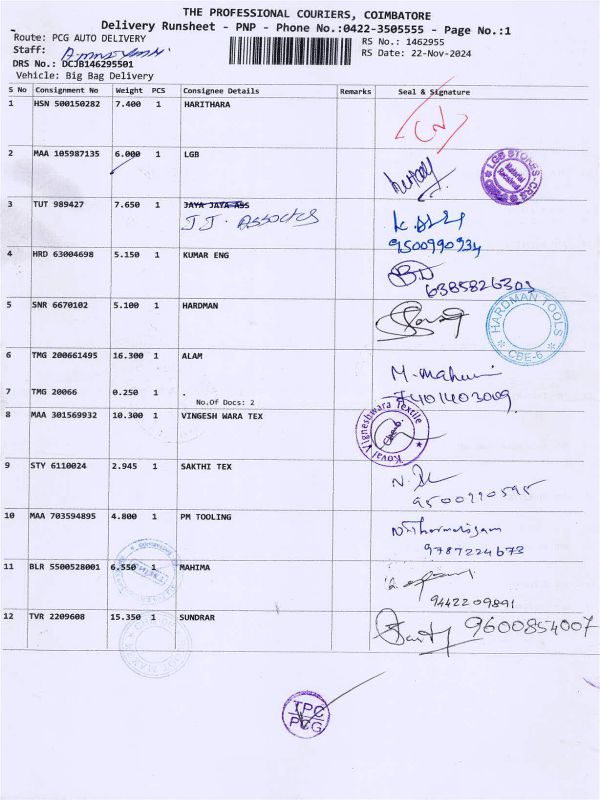 THE PROFESSIONAL COURIERS, COIMBATORE
Delivery Runsheet - PNP - Phone No.:0422-3505555 - Page No.:1
Route: PCG AUTO DELIVERY RS No.: 1462955
Staff: RS Date: 22-Nov-2024
DRS No.: DCJB146295501
Vehicle: Big Bag Delivery
S No Consignment No Weight PCS Consignee Details Remarks Seal & Signature
1 HSN 500150282 7.400 1 HARITHARA
2 MAA 105987135 6.000 1 LGB
LGB STORES-CRS Material Received
3 TUT 989427 7.650 1 JAYA JAYA ASS
JJ. Associates
9500990934
4 HRD 63004698 5.150 1 KUMAR ENG
6385826303
5 SNR 6670102 5.100 1 HARDMAN
HARDMAN TOOLS CBE-6
6 TMG 200661495 16.300 1 ALAM
7 TMG 20066 0.250 1 .
No.Of Docs: 2
7401403009
8 MAA 301569932 10.300 1 VINGESH WARA TEX
Koval Vigneshwara Textile
9 STY 6110024 2.945 1 SAKTHI TEX
10 MAA 703594895 4.800 1 PM TOOLING
9787224673
11 BLR 5500528001 6.550 1 MAHIMA
9442209891
12 TVR 2209608 15.350 1 SUNDRAR
9600854007
TPC
PCG